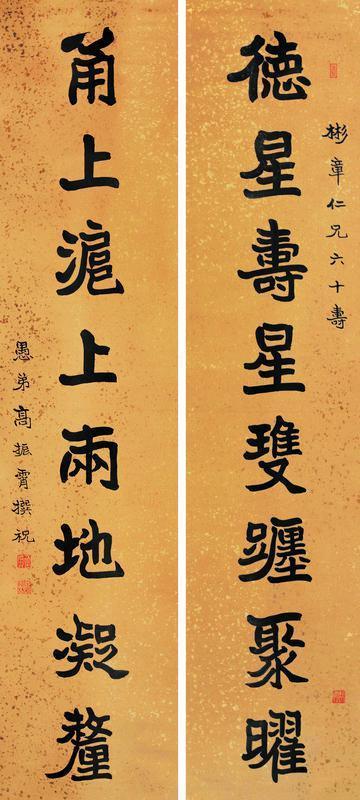 彬章仁兄六十壽
徳星壽星雙躔聚曜
甬上滬上兩地凝釐
愚弟高振霄撰祝